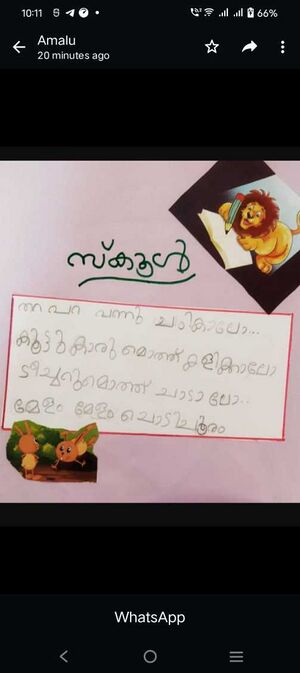 10:11
66%
Amalu
20 minutes ago
സ്കൂൾ
പറ വന്നു
കൂട്ടുകാരുമൊത്ത് കളിക്കാലോ
ടീച്ചറുമൊത്ത് പാടാലോ..
മേളം മേളം പൊടിപൂരം
WhatsApp